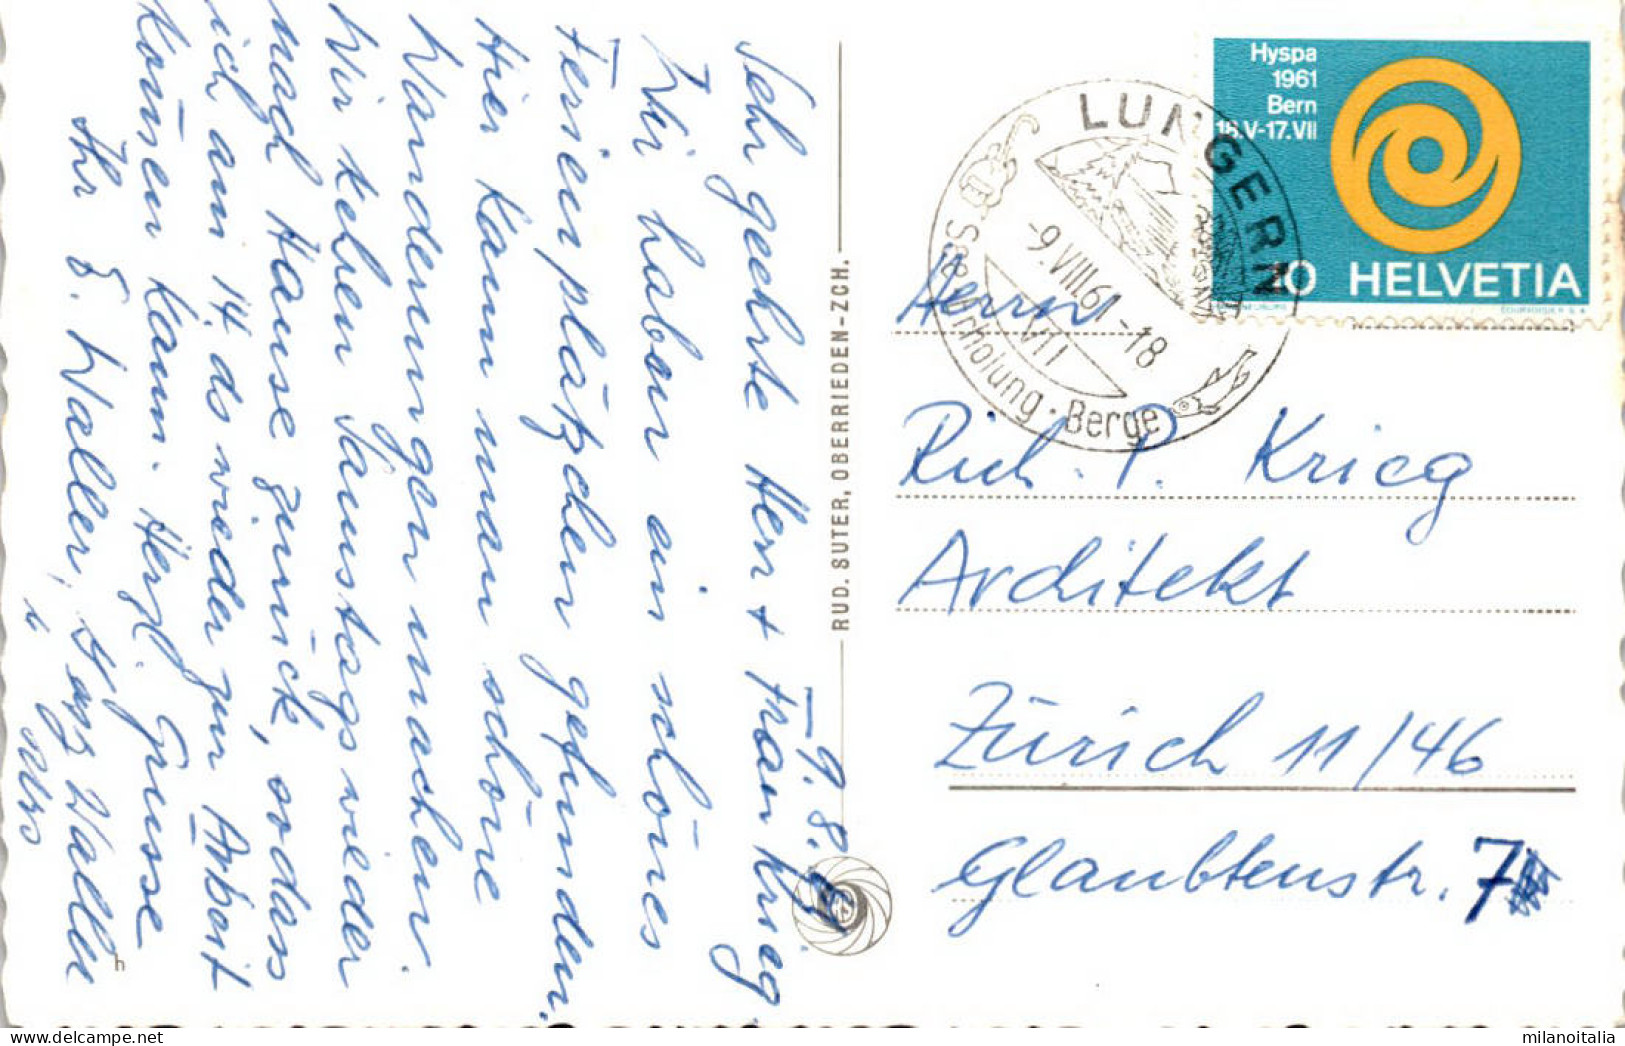 -9.8.61
Sehr geehrte Herr + Frau Krieg,
Wir haben ein schönes
Ferienplätzchen gefunden.
Hier kann man schöne
Wanderungen machen.
Wir kehren Samstags wieder
nach Hause zurück, sodass
ich am 14. ds wieder zur Arbeit
kommen kann. Herzl. Grüsse
Ihr E. Waller, Waller
u
RUD. SUTER, OBERRIEDEN-ZCH.
h
Hyspa
1961
Bern
18.V-17.VII
10 HELVETIA
COURVOISIER S.A.
LUNGERN
-9.VIII.61-18
VII
See · Erholung · Berge
Herrn
Rich. P. Krieg
Architekt
Zürich 11/46
Glaubtenstr. 7
www.delcampe.net
milanoitalia